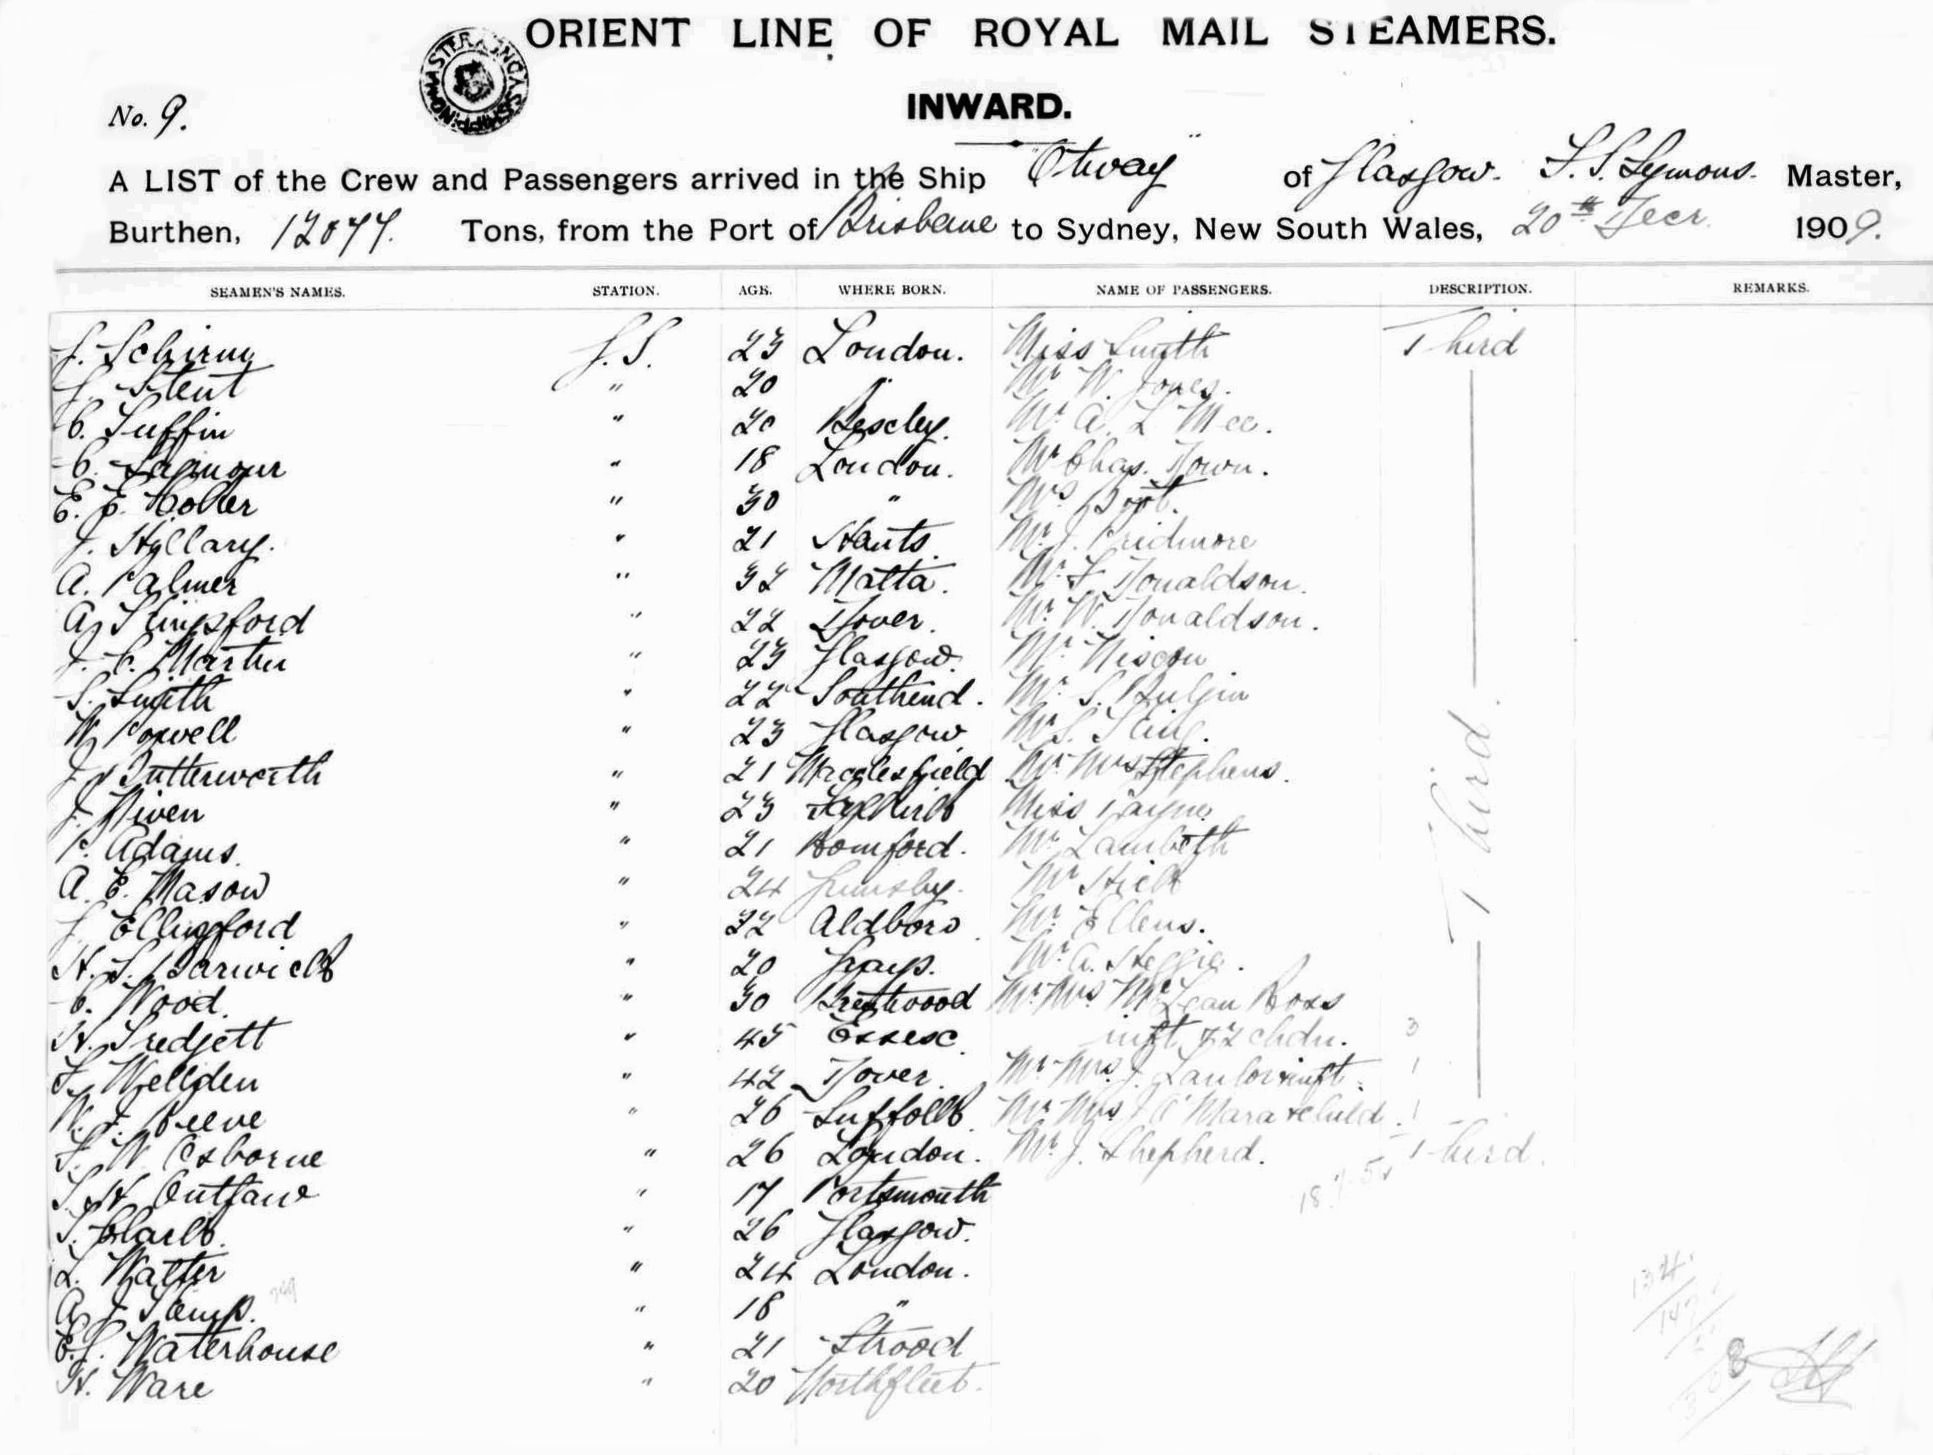 ORIENT LINE OF ROYAL MAIL STEAMERS.
INWARD.
No. 9.
A LIST of the Crew and Passengers arrived in the Ship "Otway" of Glasgow. F. S. Symons. Master,
Burthen, 12077. Tons, from the Port of Brisbane to Sydney, New South Wales, 20th Decr. 1909.
SEAMEN'S NAMES. STATION. AGE. WHERE BORN. NAME OF PASSENGERS. DESCRIPTION. REMARKS.
J. G.S. 23 London. Miss Smith Third
J. Stent " 20 " Mr W. Jones.
C. Tuffin " 20 Bexley. Mr A. L. Mee.
C. Seymour " 18 London. Mr Chas. Down.
E. E. " 30 " Mrs
J. Hillary. " 21 Hants. Mr J. Pridmore
A. Palmer " 32 Malta. Mr F. Donaldson.
A. Kingsford " 22 Dover. Mr W. Donaldson.
J. C. Martin " 23 Glasgow. Mr Niscon
S. Smith " 22 Southend. Mr S. Bulgin
W. Powell " 23 Glasgow Mr S. King.
J. Butterworth " 21 Macclesfield Mr Mrs Stephens.
J. Niven " 23 Falkirk Miss Payne
P. Adams. " 21 Romford. Mr Lambeth
A. E. Mason " 24 Grimsby. Mr Hick
J. Ellingford " 32 Aldboro. Mr Ellens.
H. S. Barwick " 20 Grays. Mr A. Heggie.
C. Wood. " 30 Brentwood Mr Mrs McLean Ross
H. Fredjett " 45 Essex. inft & 2 chdn. 3
F. Wellden " 42 Dover. Mr Mrs J. inft. 1
W. J. Reeve " 26 Suffolk. Mr Mrs J O'Mara & child. 1
F. W. Osborne " 26 London. Mr J. Shepherd. Third.
S. H. Outlaw " 17 Portsmouth
T. Clark. " 26 Glasgow.
L. Watter " 24 London.
A. J. Kemp. " 18 "
E. J. Waterhouse " 21 Strood
H. Ware " 20 Northfleet.
Third.